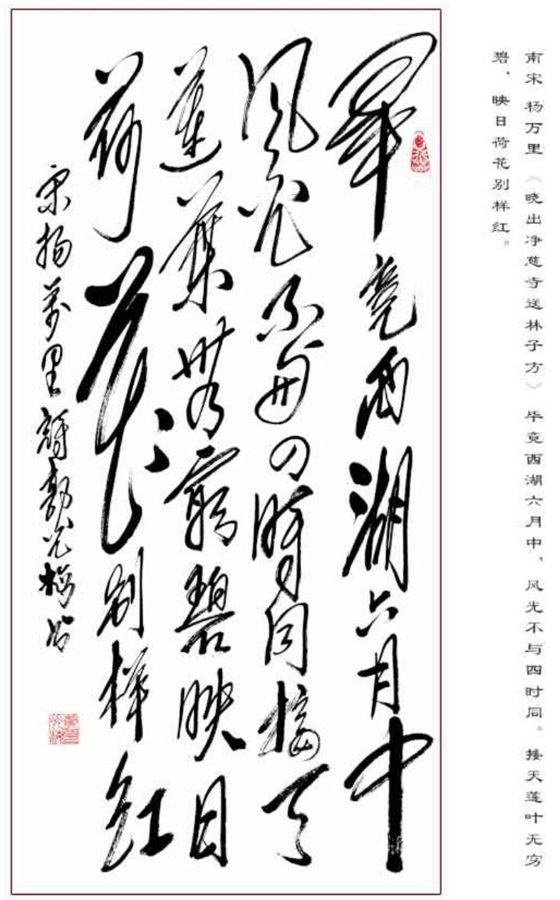 南宋 杨万里 《晓出净慈寺送林子方》 毕竟西湖六月中，风光不与四时同。接天莲叶无穷
碧，映日荷花别样红。
畢竟西湖六月中
風光不與四時同接天
蓮葉無窮碧映日
荷花别樣紅
宋楊萬里詩 光梅书